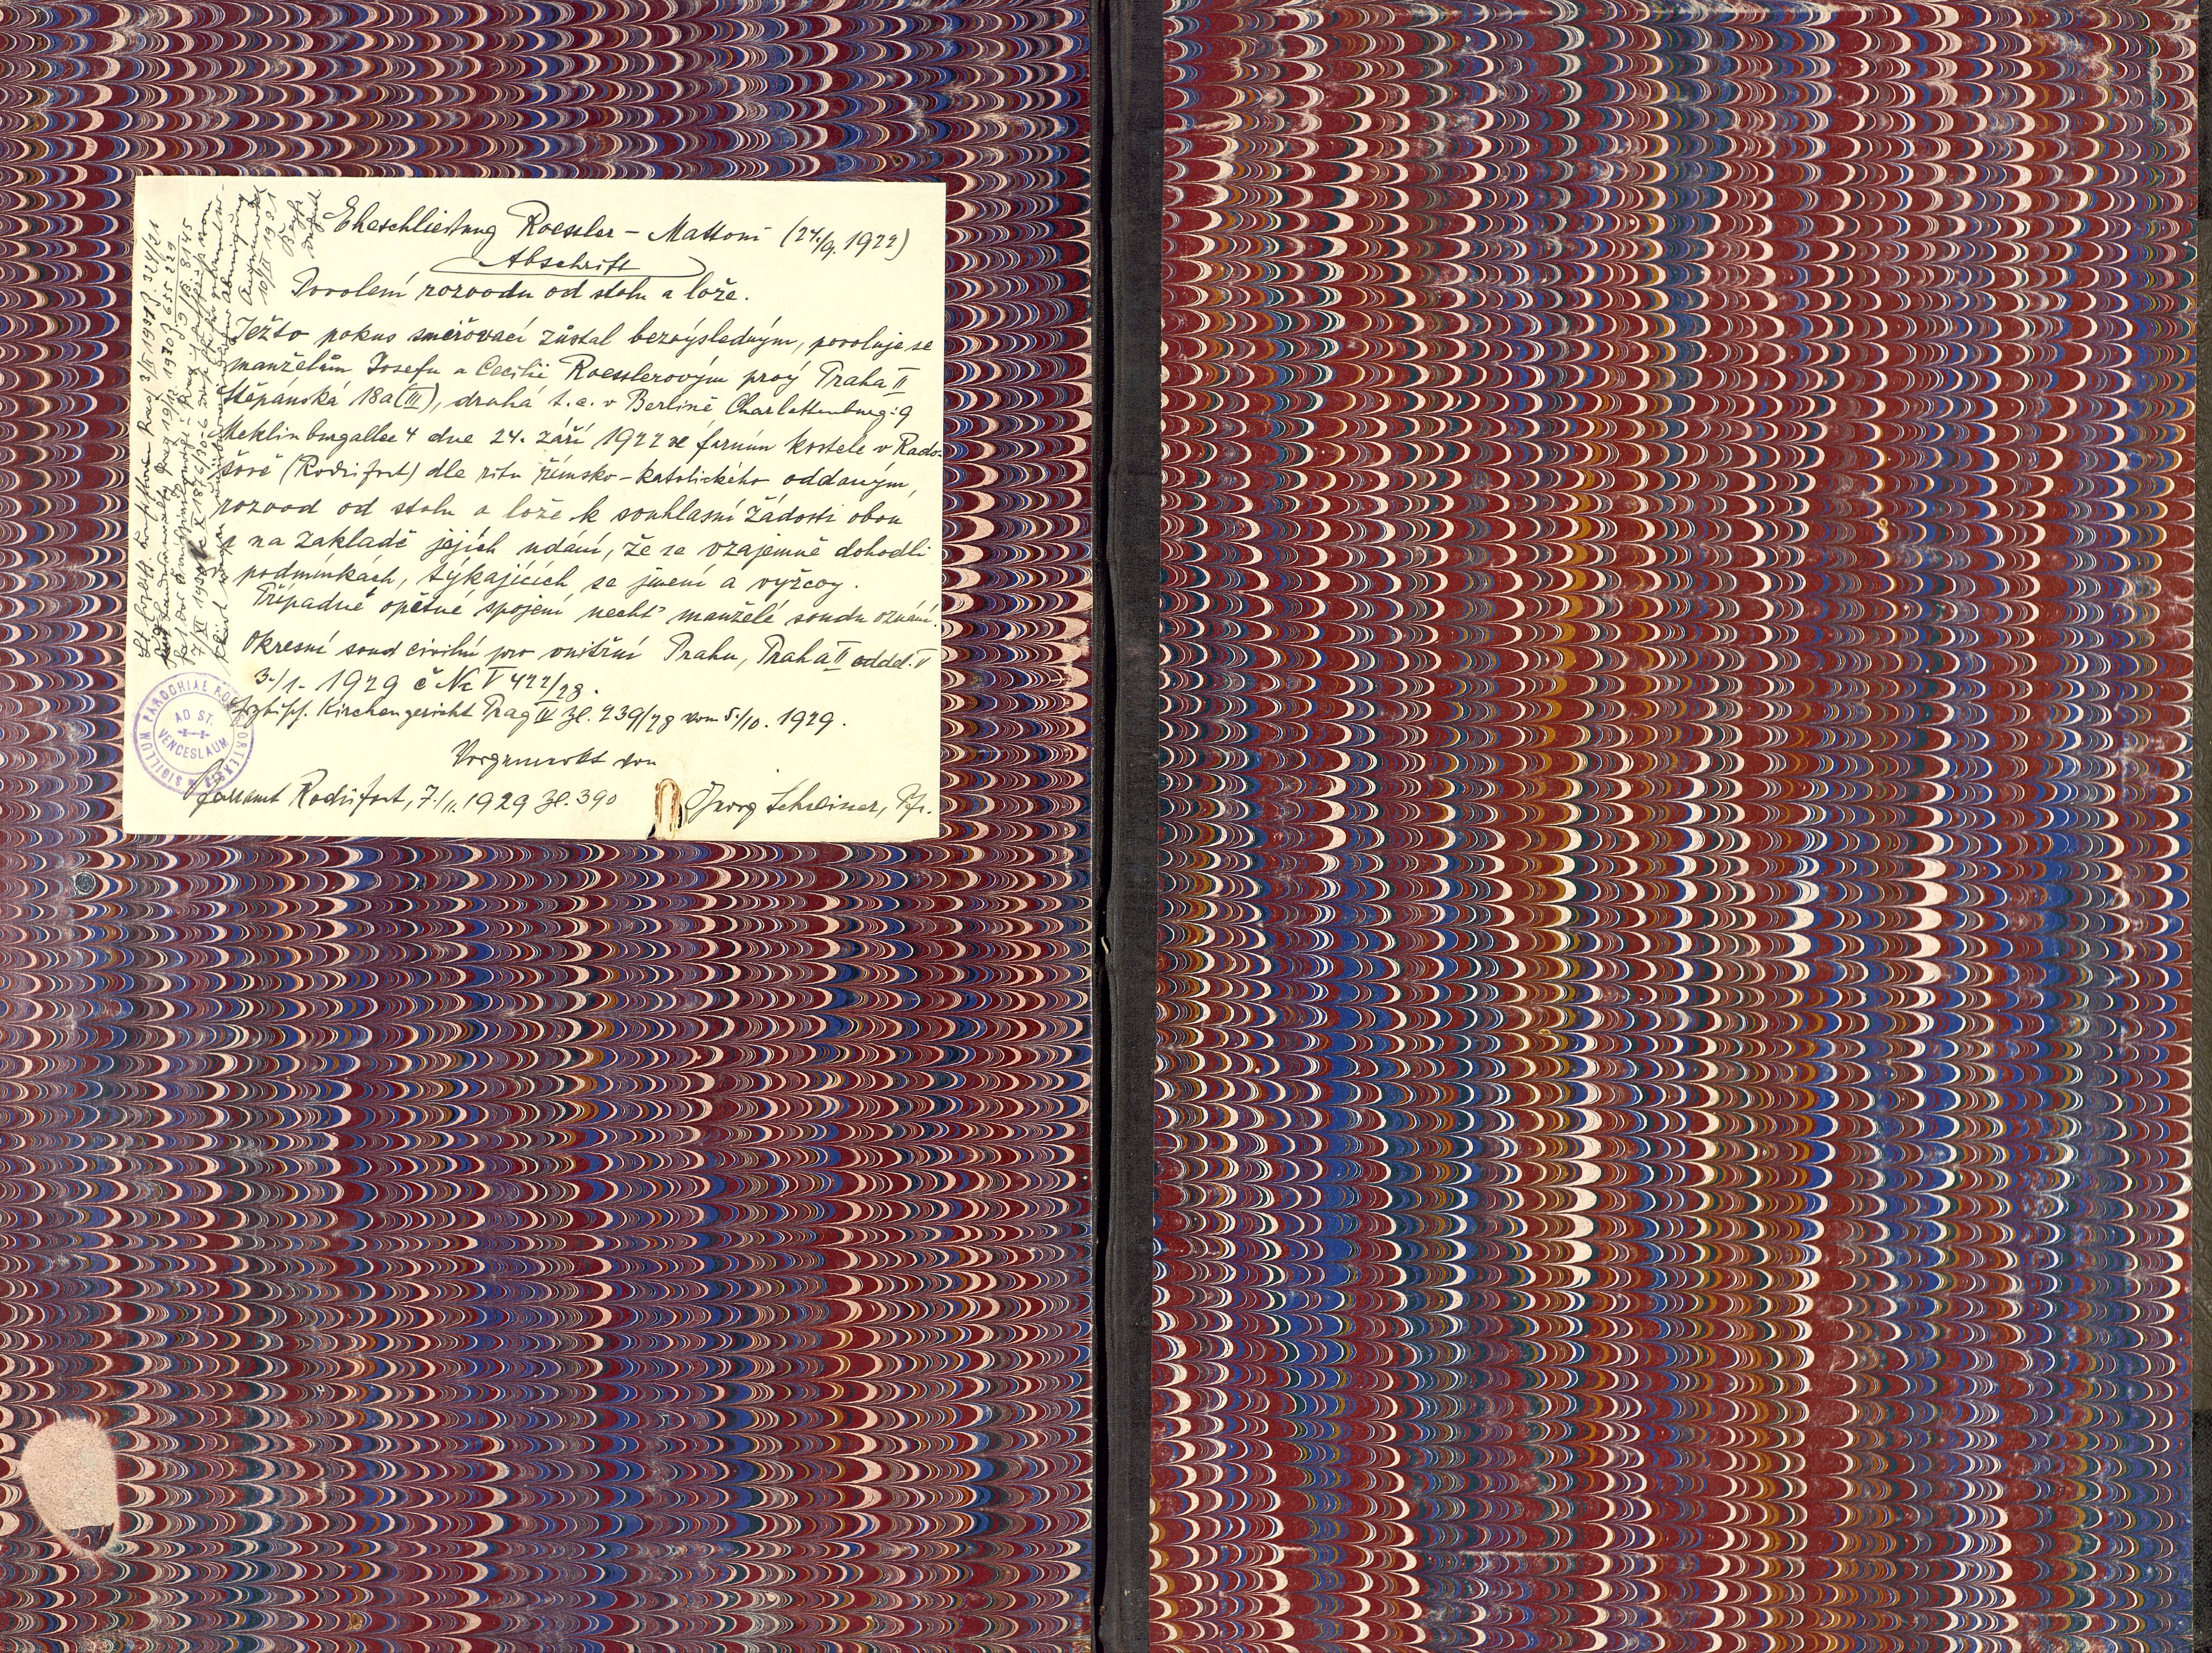 Eheschließung Roessler – Mattoni (24./9. 1922)
Abschrift
Povolení rozvodu od stolu a lože.
Ježto pokus smiřovací zůstal bezvýsledným, povoluje se
manželům Josefu a Cecilii Roesslerovým prvý Praha II
Štěpánská 18a (III), druhá t. č. v Berlíně Charlottenburg: 9
Meklinburgallee 4 dne 24. září 1922 ve farním kostele v Rado-
šově (Rodisfort) dle ritu římsko-katolického oddaným,
rozvod od stolu a lože k souhlasné žádosti obou
a na základě jejich udání, že se vzájemně dohodli
podmínkách, týkajících se jmění a výživy.
Případné opětné spojení nechť manželé soudu oznámí.
Okresní soud civilní pro vnitřní Prahu, Praha II odděl. V
3./1. 1929 č Nc V 422/28.
Kirchengericht Prag IV Zl. 239/28 vom 5./10. 1929.
Vorgemerkt von
Pfarramt Rodisfort, 7./11. 1929 Zl. 390 Georg Schreiner, Pfr.
SIGILLUM PAROCHIAE RODISFORTENSIS
AD ST.
VENCESLAUM